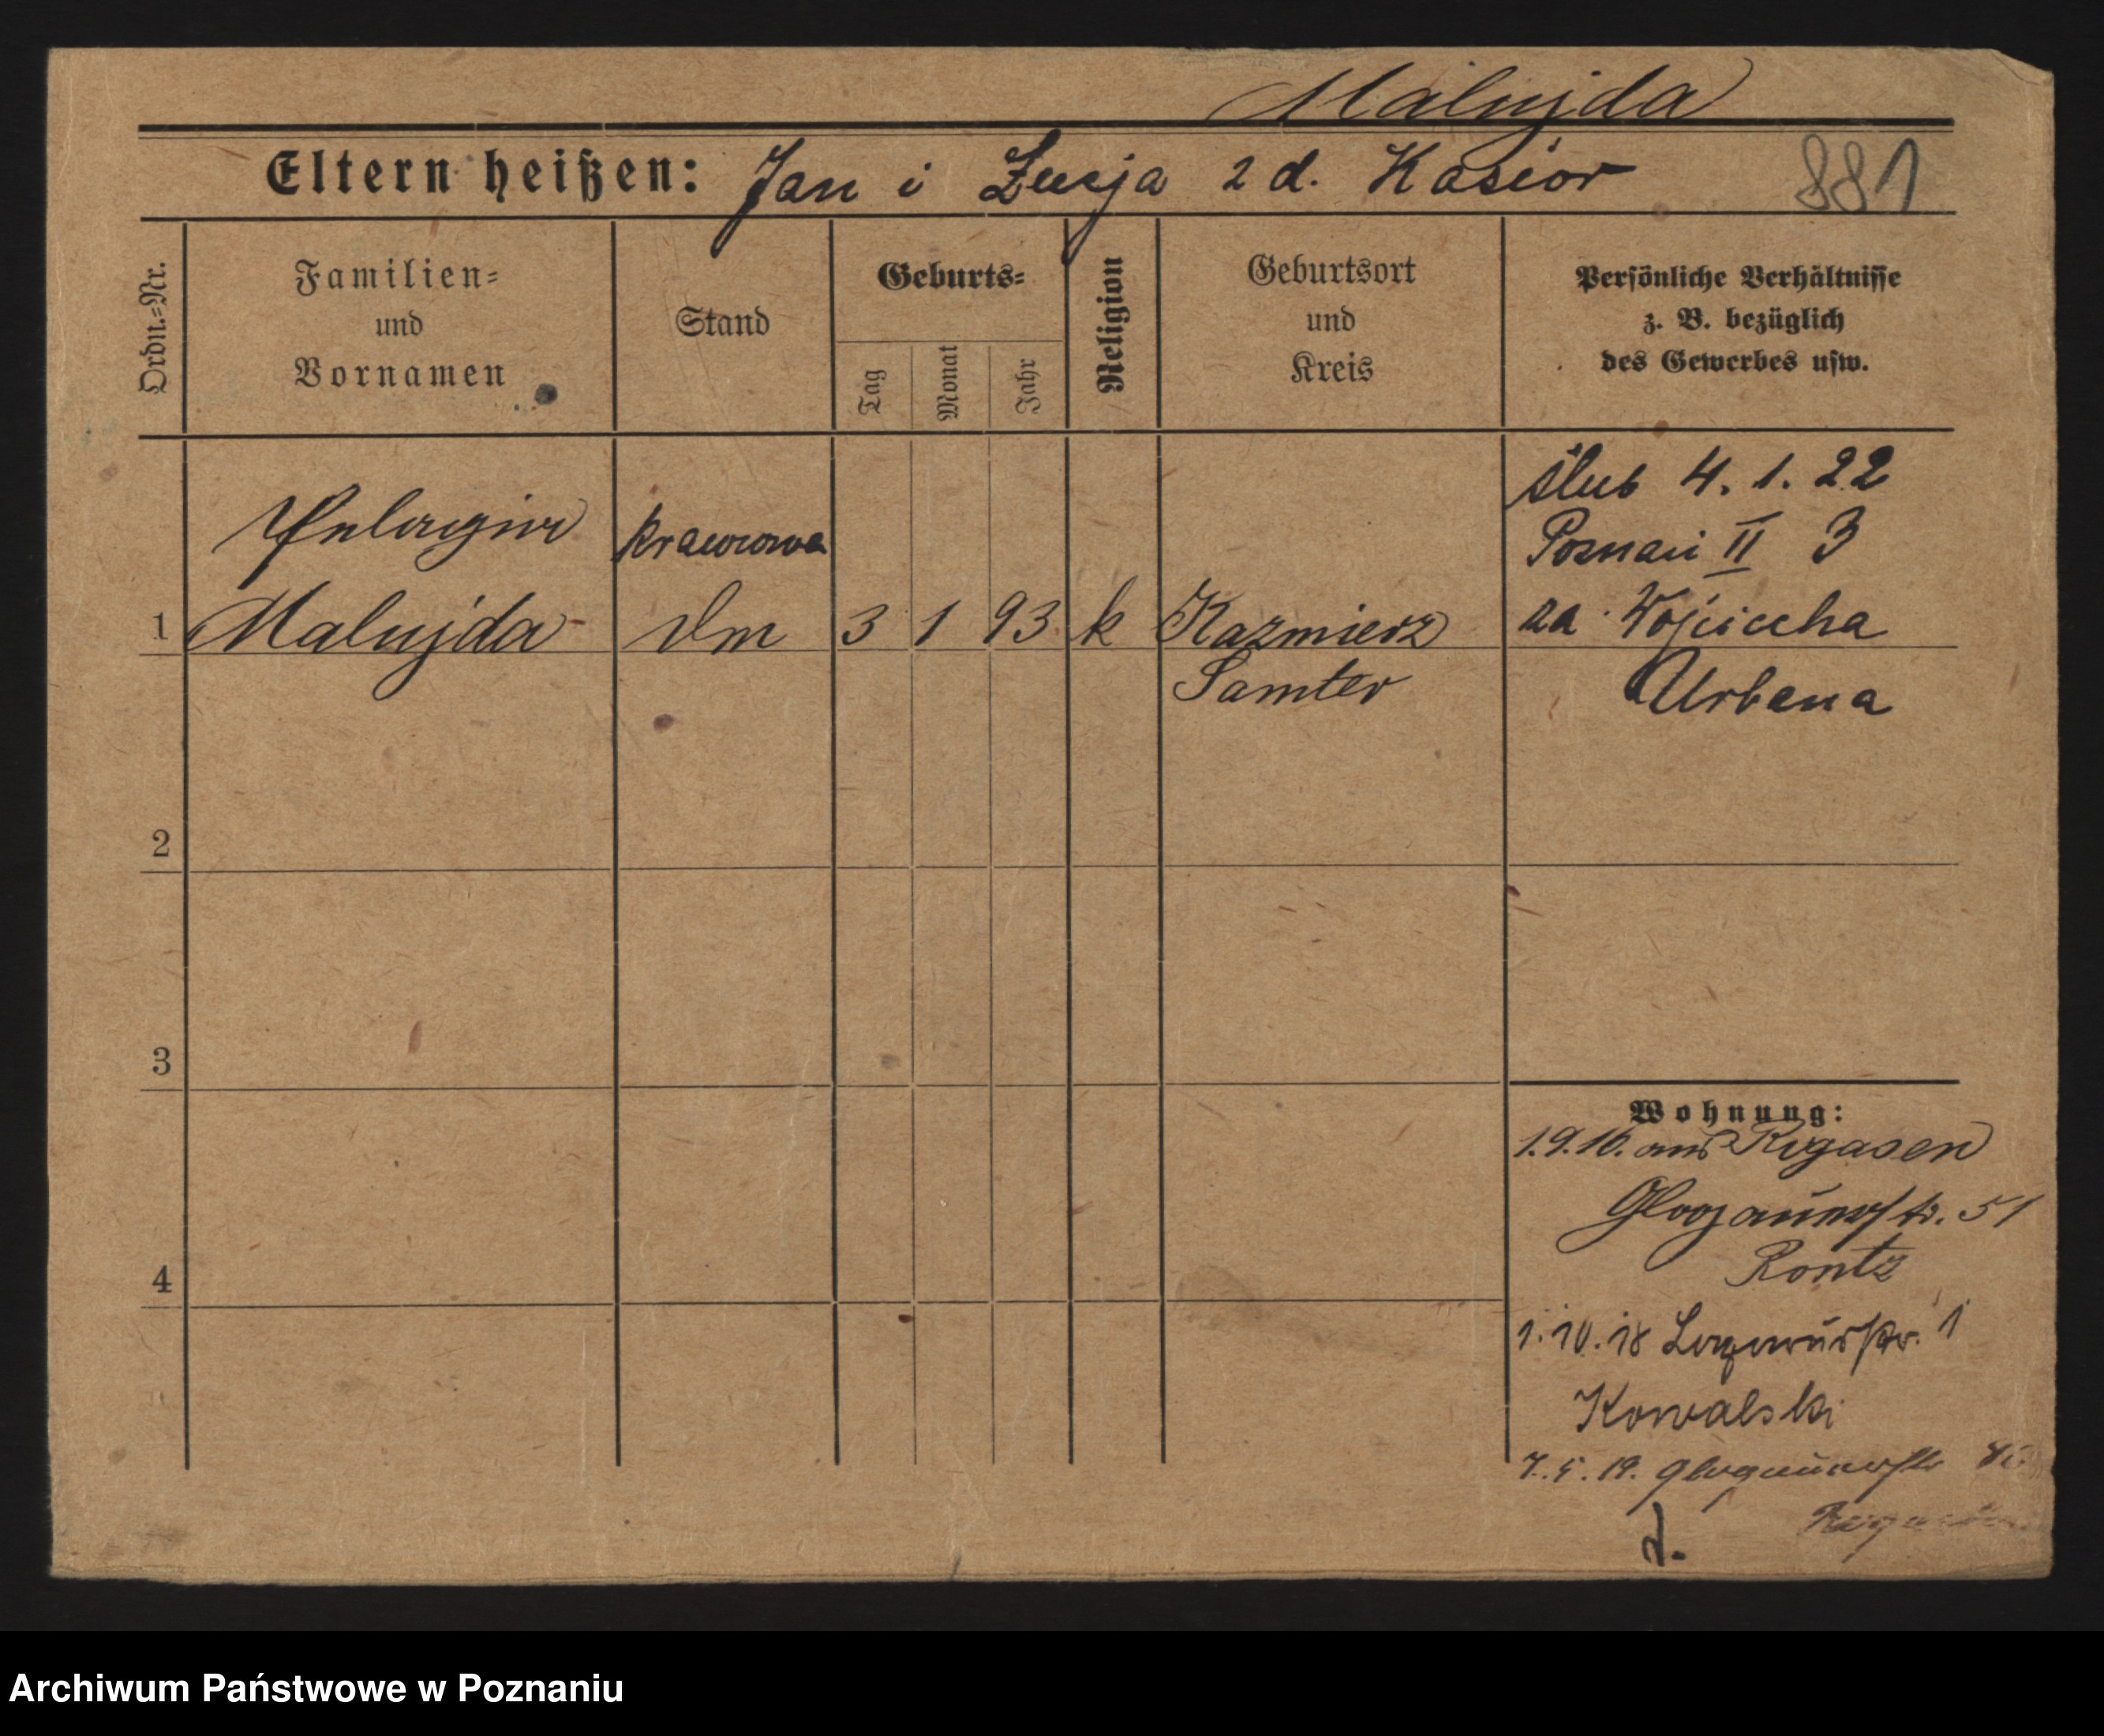 Malujda
Eltern heißen: Jan i Łucja z d. Kasior 881
Ordn.=Nr.
Familien=
und
Vornamen
Stand
Geburts=
Tag
Monat
Jahr
Religion
Geburtsort
und
Kreis
Persönliche Verhältnisse
z. B. bezüglich
des Gewerbes usw.
1
Pelagia
Malujda
krawcowa
3 1 93 k
Kazmierz
Samter
ślub 4. 1. 22
Poznań II 3
za Wojciecha
Urbana
2
3
4
Wohnung:
1.9.16. aus Rogasen
Glogauerstr. 51
Rontz
1.10.18 1
Kowalski
7.5.19. Glogauerstr
Archiwum Państwowe w Poznaniu